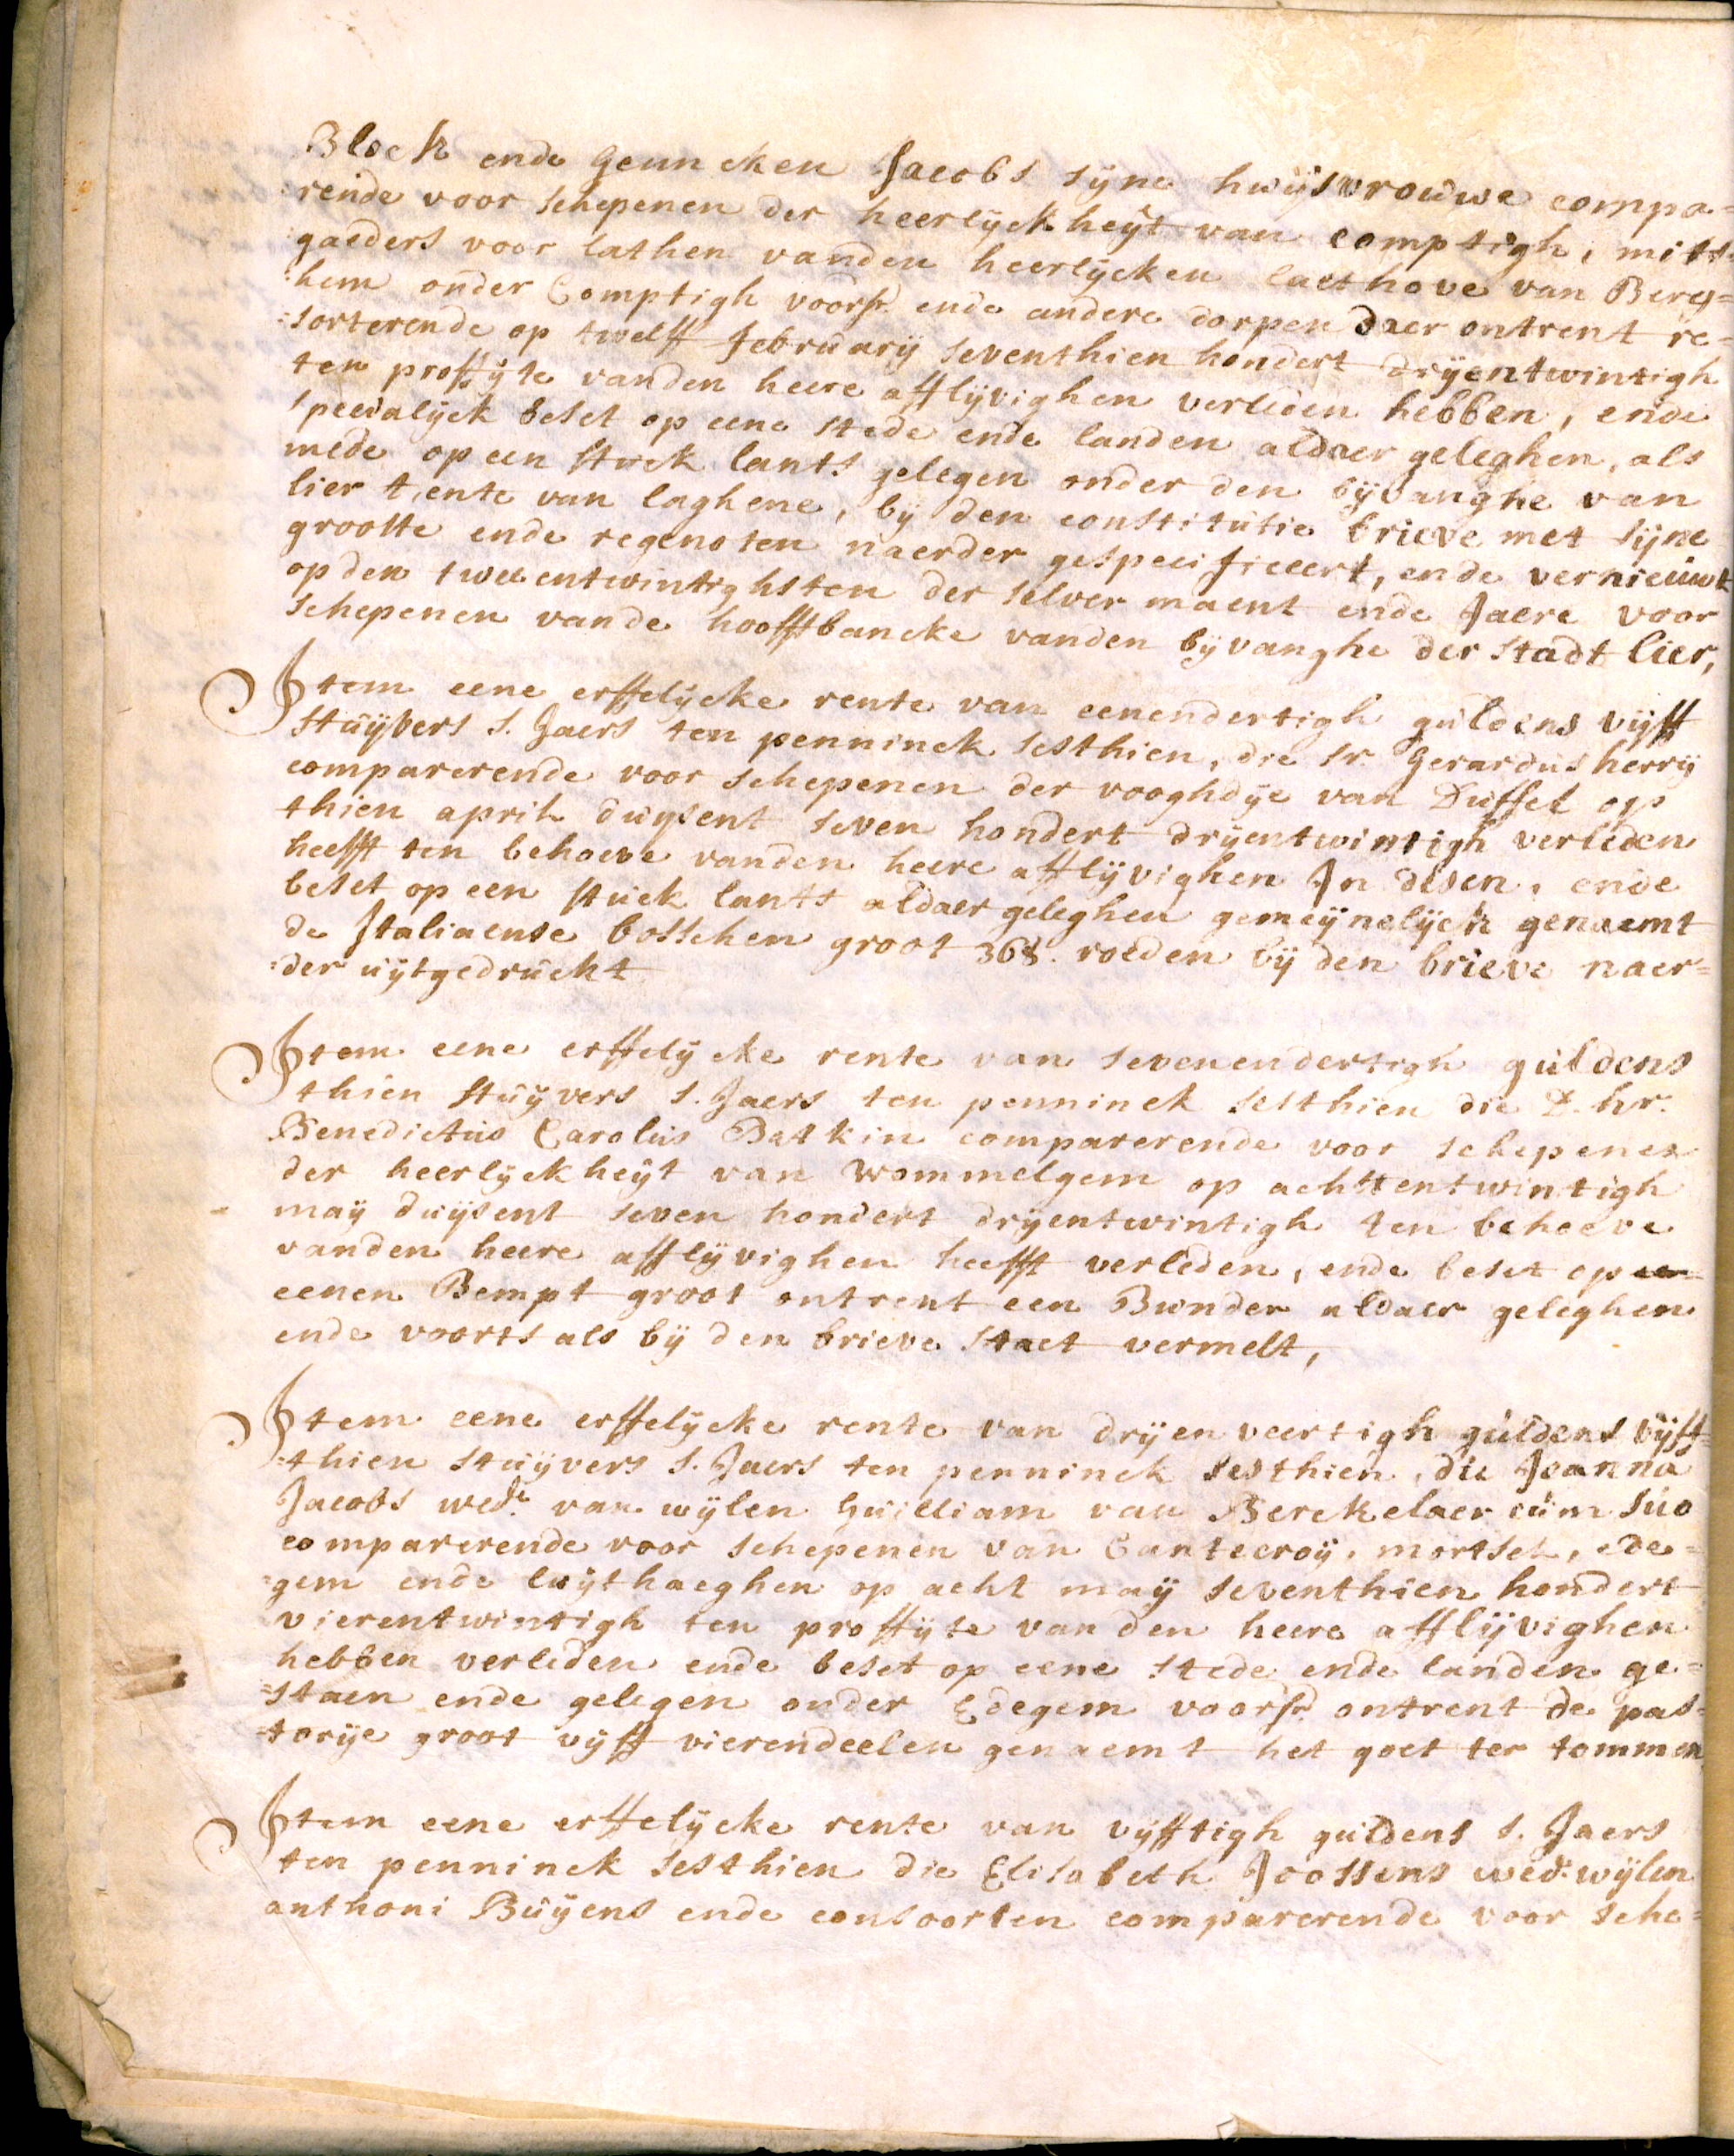 Block ende Geuncken Jacobs sijne huijsvrouwe compa-
:rende voor schepenen der heerlijckheijt van comptigh, mits-
:gaeders voor lathen vanden heerlijcken laethove van Berg-
:hem onder Comptigh voorsr. ende andere dorpen daer ontrent re-
:sorterende op twelff februarij seventhien hondert drijentwintigh
ten proffijte vanden heere afflijvighen verleden hebben, ende
specialijck beset op eene stede ende landen aldaer geleghen, als
mede op een stuck lants gelegen onder den bijvanghe van
lier t'ente van laghene, bij den constitutie brieve met sijne
grootte ende regenoten naerder gespecificeert, ende vernieuwt
op den tweentwintighsten der selver maent ende Jaere voor
schepenen vande hooftbancke vanden bijvanghe der stadt lier,
Item eene erffelijcke rente van eenendertigh guldens vijff
stuijvers s. Jaers ten penninck sesthien, die sr. Gerardus herrij
comparerende voor schepenen der vooghdije van Duffel op
thien april duijsent seven hondert drijentwintigh verleden
heefft ten behoeve vanden heere afflijvighen In desen, ende
beset op een stuck lants aldaer geleghen gemeijnelijck genaemt
de Italiaense bosschen groot 368. roeden bij den brieve naer=
:der uijtgedruckt
Item eene erffelijcke rente van sevenendertigh guldens
thien stuijvers s. Jaers ten penninck sesthien die D. hr.
Benedictus Carolus Batkin comparerende voor schepenen
der heerlijckheijt van wommelgem op achttentwintigh
maij duijsent seven hondert drijentwintigh ten behoeve
vanden heere afflijvighen heefft verleden, ende beset op een=
eenen Bempt groot ontrent een Bunder aldaer geleghen
ende voorts als bij den brieve staet vermelt,
Item eene erffelijcke rente van drijenveertigh guldens vijff=
:thien stuijvers s. Jaers ten penninck sesthien, die Joanna
Jacobs wede. van wijlen Guilliam van Berckelaer cum suo
comparerende voor schepenen van Cantecroij, mortsel, ede=
:gem ende luijthaeghen op acht maij seventhien hondert
vierentwintigh ten proffijte van den heere afflijvighen
hebben verleden ende beset op eene stede ende landen ge=
=staen ende gelegen onder Edegem voorsr. ontrent de pas=
=torije groot vijff vierendeelen genaemt het goet ter tommen
Item eene erffelijcke rente van vijfftigh guldens s. Jaers
ten penninck sesthien die Elisabeth Joossens wed: wijlen
anthoni Buijens ende consoorten comparerende voor sche=